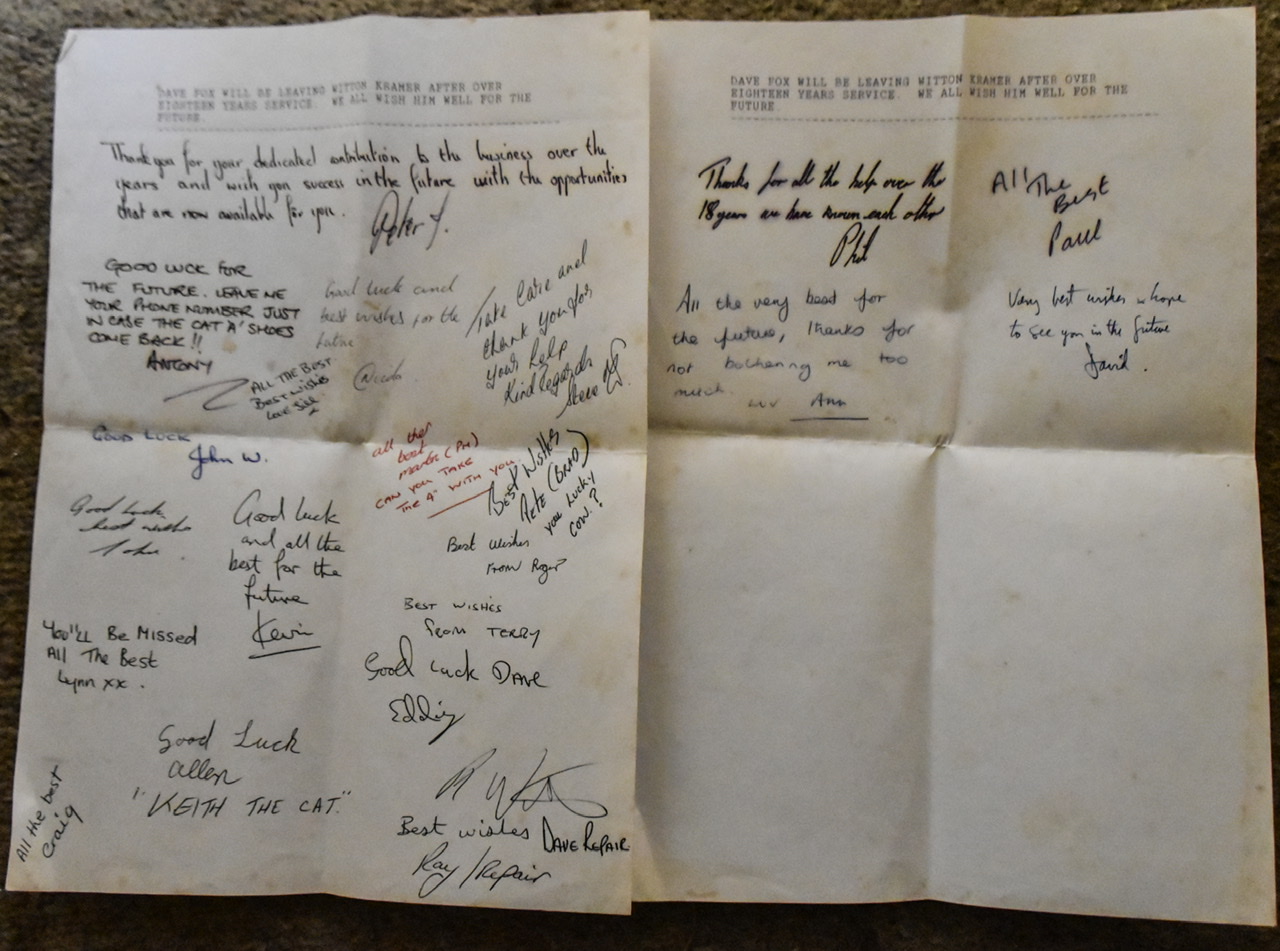 DAVE FOX WILL BE LEAVING WITTON KRAMER AFTER OVER
EIGHTEEN YEARS SERVICE. WE ALL WISH HIM WELL FOR THE
FUTURE.
Thank you for your dedicated contribution to the business over the
years and wish you success in the future with the opportunities
that are now available for you.
Peter J.
GOOD LUCK FOR
THE FUTURE. LEAVE ME
YOUR PHONE NUMBER JUST
IN CASE THE CAT 'A' SHOES
COME BACK!!
ANTONY
Good luck and
best wishes for the
future
Take Care and
thank you for
your help
Kind Regards
Steve
ALL THE BEST
BEST WISHES
LOVE
GOOD LUCK
John W.
all the
best
mark (PM)
CAN YOU TAKE
THE 9" WITH YOU.
BEST WISHES
PETE (BRAD)
YOU LUCKY
COW.?
Good Luck
best wishes
John
Good luck
and all the
best for the
future
Kevin
Best Wishes
FROM Roger
BEST WISHES
from TERRY
YOU'LL BE MISSED
All The BEST
Lynn xx.
Good Luck DAVE
Eddie
Good Luck
Allen
"KEITH THE CAT."
All the best
Craig
Best wishes DAVE REPAIR
Ray / Repair
DAVE FOX WILL BE LEAVING WITTON KRAMER AFTER OVER
EIGHTEEN YEARS SERVICE. WE ALL WISH HIM WELL FOR THE
FUTURE.
Thanks for all the help over the
18 years we have known each other
Phil
All The
Best
Paul
All the very best for
the future, thanks for
not bothering me too
much luv Ann
Very best wishes & hope
to see you in the future
David.